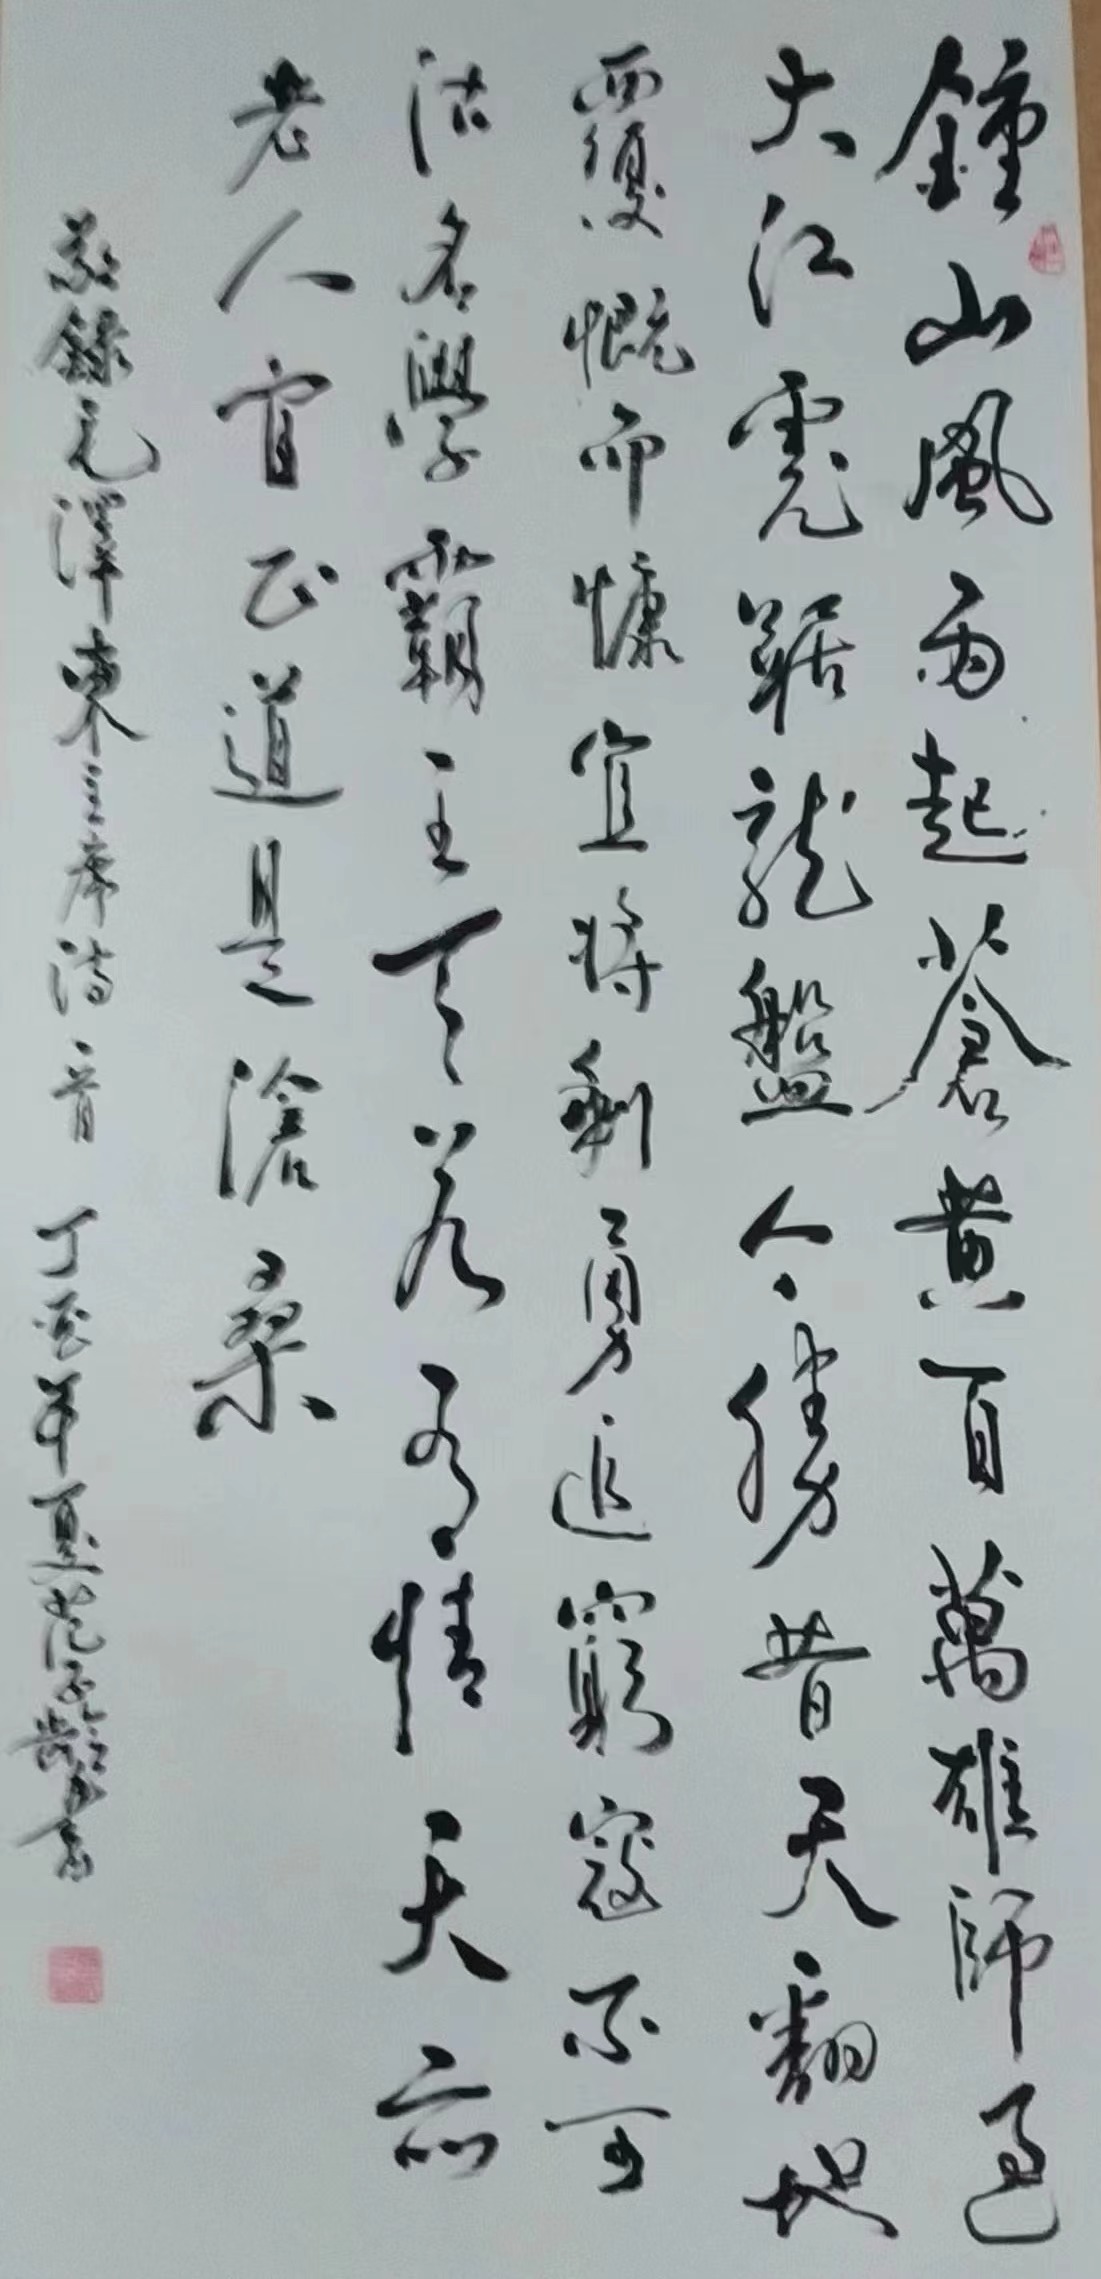 鍾山風雨起蒼黃百萬雄師過
大江虎踞龍盤今勝昔天翻地
覆慨而慷宜將剩勇追窮寇不可
沽名學霸王天若有情天亦
老人間正道是滄桑
敬錄毛澤東主席詩一首 丁酉年夏范子齡書